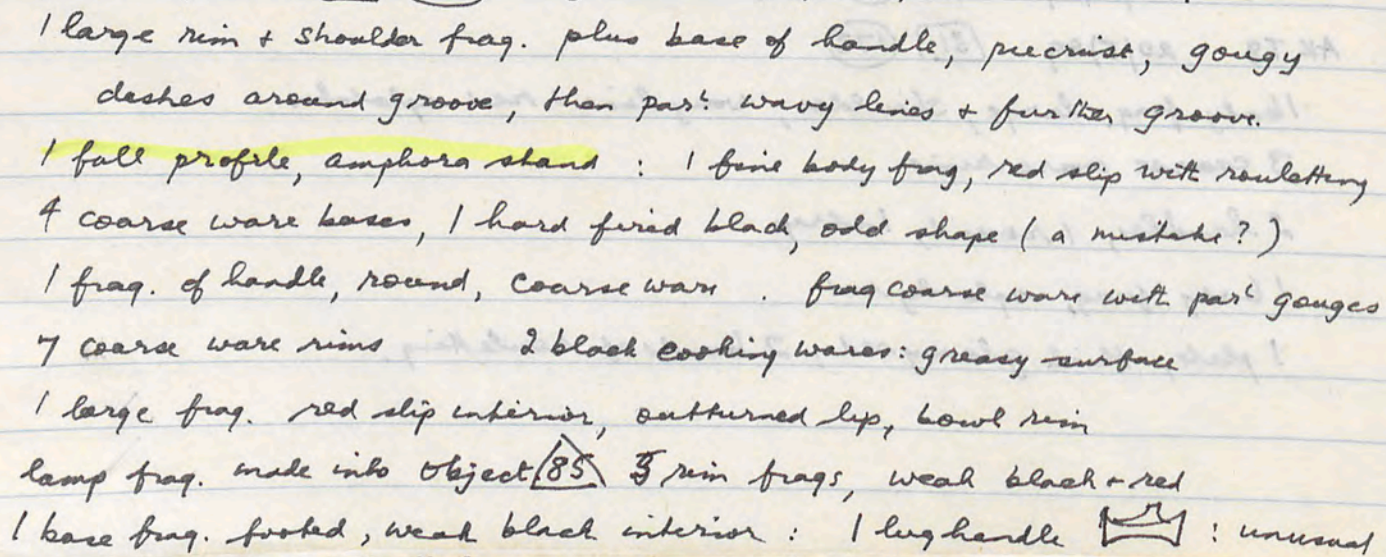 1 large rim + shoulder frag. plus base of handle, precise, gougy
dashes around groove, then par<sup>l.</sup> wavy lines + further groove.
1 full profile, amphora stand : 1 fine body frag, red slip with rouletting
4 coarse ware bases, 1 hard fired black, odd shape ( a mistake ? )
1 frag. of handle, round, coarse ware . frag coarse ware with par<sup>l</sup> gouges
7 coarse ware rims 2 black cooking wares : greasy surface
1 large frag. red slip interior, outturned lip, bowl rim
lamp frag. made into Object 85 3 rim frags, weak black + red
1 base frag. footed, weak black interior : 1 lug handle : unusual